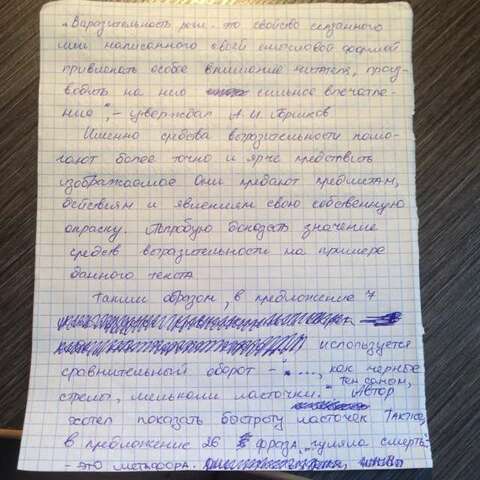 „Выразительность речи - это свойство сказанного
или написанного своей смысловой формой
привлекать особое внимание читателя, произ-
водить на него сильное впечатле-
ние", - утверждал А. И. Горшков.
Именно средства выразительности помо-
гают более точно и ярче представить
изображаемое Они придают предметам,
действиям и явлениям свою собственную
окраску. Попробую доказать значение
средств выразительности на примере
данного текста
Таким образом, в предложение 7
используется
сравнительный оборот - „ ..., как черные
стрелы, мелькали ласточки." Автор тем самым,
хотел показать быстроту ласточек Также,
в предложение 26 фраза „гуляла смерть"
- это метафора.